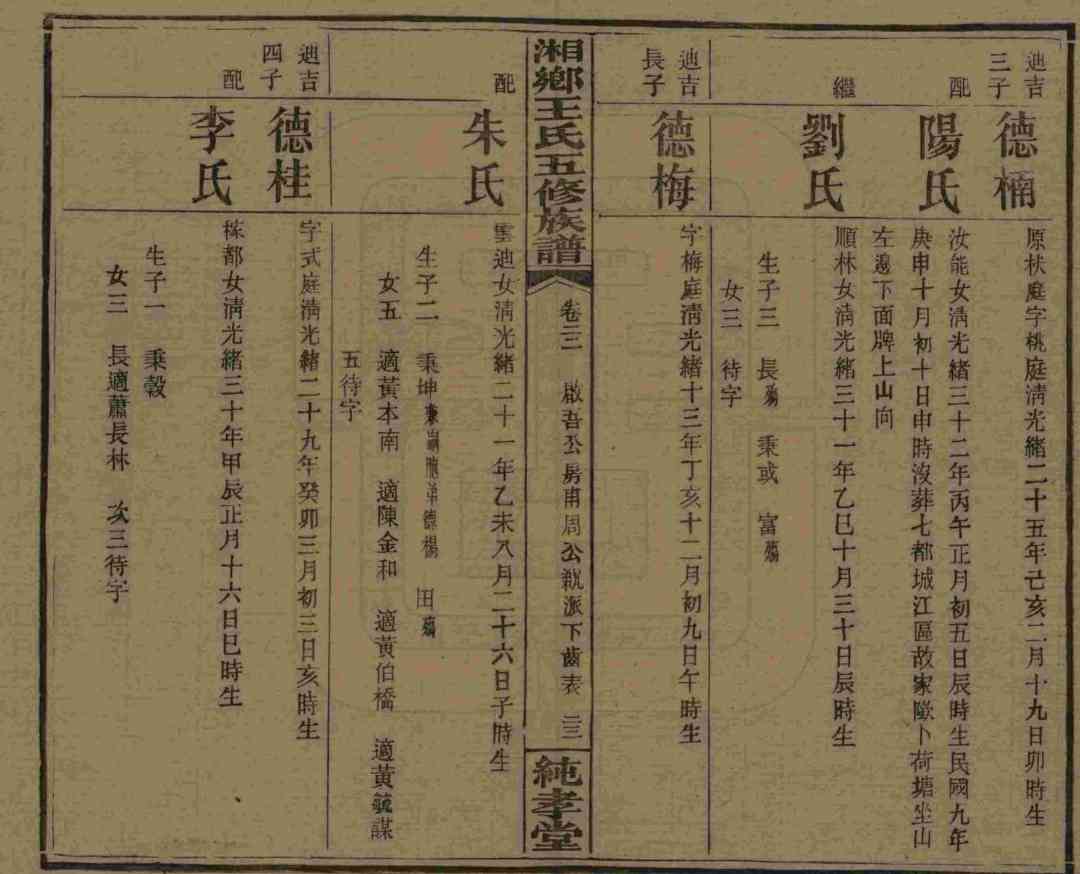 迪吉三子
德楠
原狀庭字桃庭淸光緒二十五年己亥二月十九日卯時生
配
陽氏
汝能女淸光緒三十二年丙午正月初五日辰時生民國九年
庚申十月初十日申時沒葬七都城江區故家 卜荷塘坐山
左邊下面牌上山向
繼
劉氏
順林女淸光緒三十一年乙巳十月三十日辰時生
生子三 長殤 秉或 富殤
女三 待字
迪吉長子
德梅
字梅庭淸光緒十三年丁亥十二月初九日午時生
湘鄉王氏五修族譜
卷三 啟吾公房甫周公 派下齒表 三三
純孝堂
配
朱氏
雲迪女淸光緒二十一年乙未八月二十六日子時生
生子二 秉坤兼 德楊 田殤
女五 適黃本南 適陳金和 適黃伯橋 適黃毓謀
五待字
迪吉四子
德桂
字式庭淸光緒二十九年癸卯三月初三日亥時生
配
李氏
株都女淸光緒三十年甲辰正月十六日巳時生
生子一 秉穀
女三 長適蕭長林 次三待字